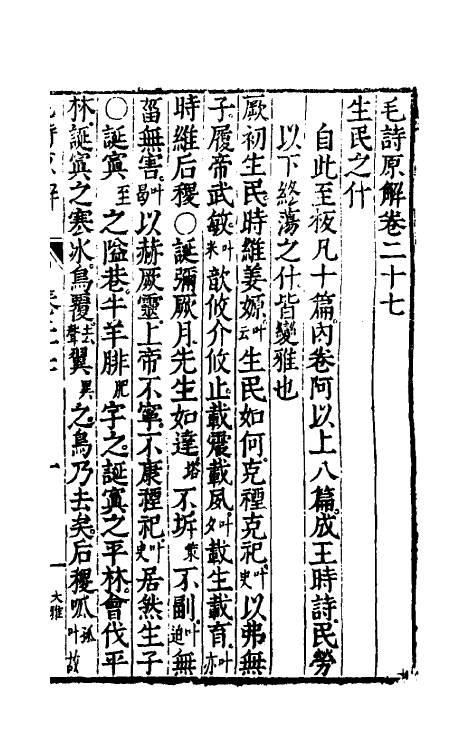 毛詩原解卷二十七
生民之什
自此至板凡十篇內卷阿以上八篇成王時詩民勞
以下終蕩之什皆變雅也
厥初生民時維姜嫄叶云生民如何克禋克祀叶史以弗無
子履帝武敏叶米歆攸介攸止載震載夙叶夕載生載育叶亦
時維后稷○誕彌厥月先生如達塔不坼策不副叶迫無
菑無害叶曷以赫厥靈上帝不寧不康禋祀叶史居然生子
○誕寘至之隘巷牛羊腓肥字之誕寘之平林會伐平
林誕寘之寒冰鳥覆去聲翼異之鳥乃去矣后稷呱孤叶故
卷二十七
一
大雅